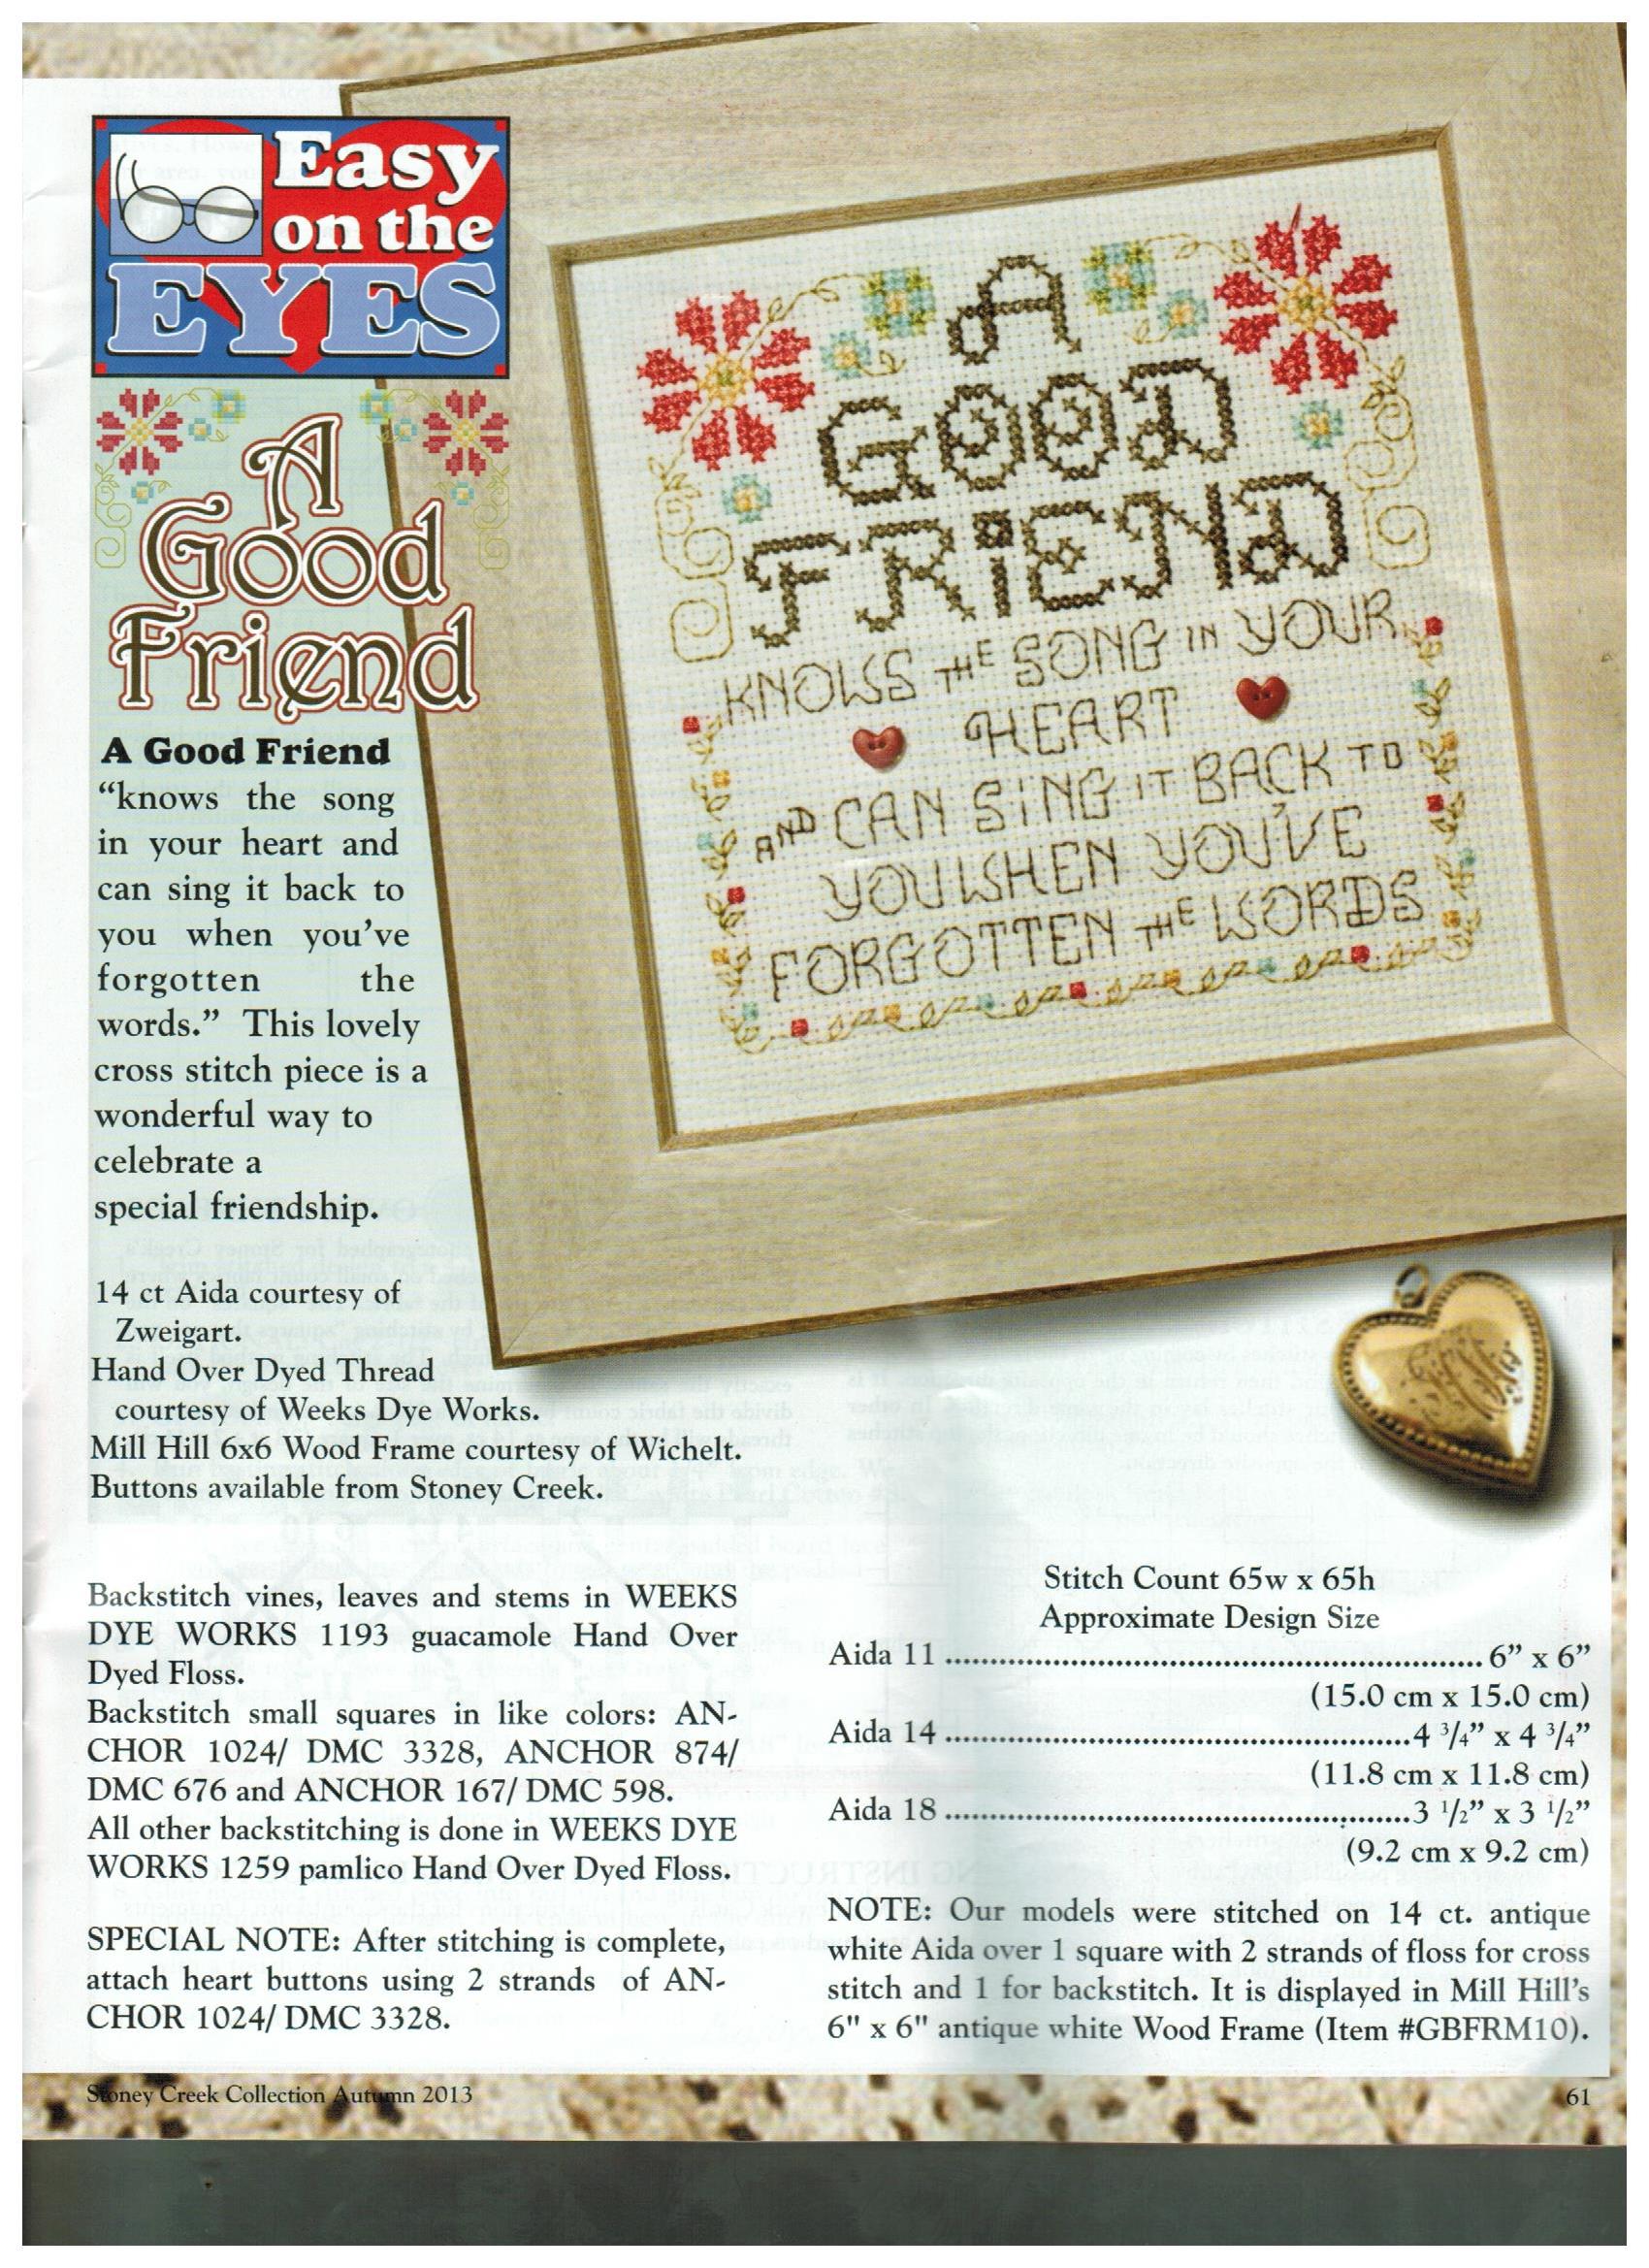 Easy
on the
EYES
A
Good
Friend
A Good Friend
“knows the song
in your heart and
can sing it back to
you when you’ve
forgotten the
words.” This lovely
cross stitch piece is a
wonderful way to
celebrate a
special friendship.
A
GOOD
FRiEND
KNOWS THE SONG IN YOUR
HEART
AND CAN SiNG IT BACK TO
YOU WHEN YOU'VE
FORGOTTEN THE WORDS
14 ct Aida courtesy of
Zweigart.
Hand Over Dyed Thread
courtesy of Weeks Dye Works.
Mill Hill 6x6 Wood Frame courtesy of Wichelt.
Buttons available from Stoney Creek.
Backstitch vines, leaves and stems in WEEKS
DYE WORKS 1193 guacamole Hand Over
Dyed Floss.
Backstitch small squares in like colors: AN-
CHOR 1024/ DMC 3328, ANCHOR 874/
DMC 676 and ANCHOR 167/ DMC 598.
All other backstitching is done in WEEKS DYE
WORKS 1259 pamlico Hand Over Dyed Floss.
SPECIAL NOTE: After stitching is complete,
attach heart buttons using 2 strands of AN-
CHOR 1024/ DMC 3328.
Stitch Count 65w x 65h
Approximate Design Size
Aida 11 ........................................................... 6” x 6”
(15.0 cm x 15.0 cm)
Aida 14 ...................................................4 3/4” x 4 3/4”
(11.8 cm x 11.8 cm)
Aida 18 ...................................................3 1/2” x 3 1/2”
(9.2 cm x 9.2 cm)
NOTE: Our models were stitched on 14 ct. antique
white Aida over 1 square with 2 strands of floss for cross
stitch and 1 for backstitch. It is displayed in Mill Hill’s
6" x 6" antique white Wood Frame (Item #GBFRM10).
Stoney Creek Collection Autumn 2013
61